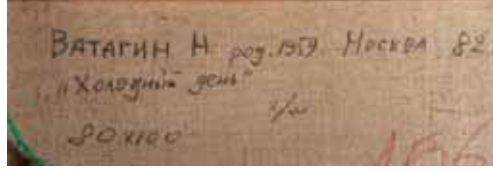 ВАТАГИН Н род. 1959 Москва 82
„Холодный день"
х/м
80х100